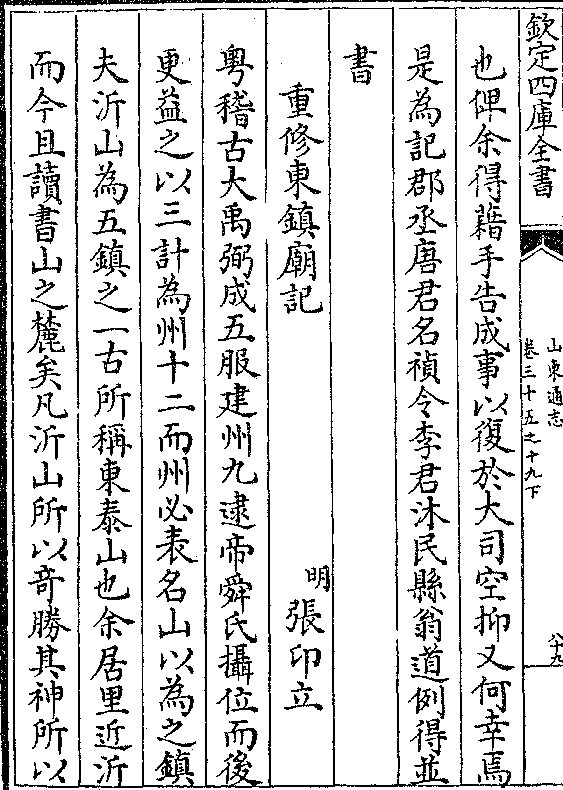 欽定四庫全書
山東通志
卷三十五之十九下
八十九
也俾余得藉手告成事以復於大司空抑又何幸焉
是為記郡丞唐君名禎令李君沐民縣翁道例得並
書
重修東鎮廟記
明張印立
粤稽古大禹弼成五服建州九逮帝舜氏攝位而後
更益之以三計為州十二而州必表名山以為之鎮
夫沂山為五鎮之一古所稱東泰山也余居里近沂
而今且讀書山之麓矣凡沂山所以竒勝其神所以